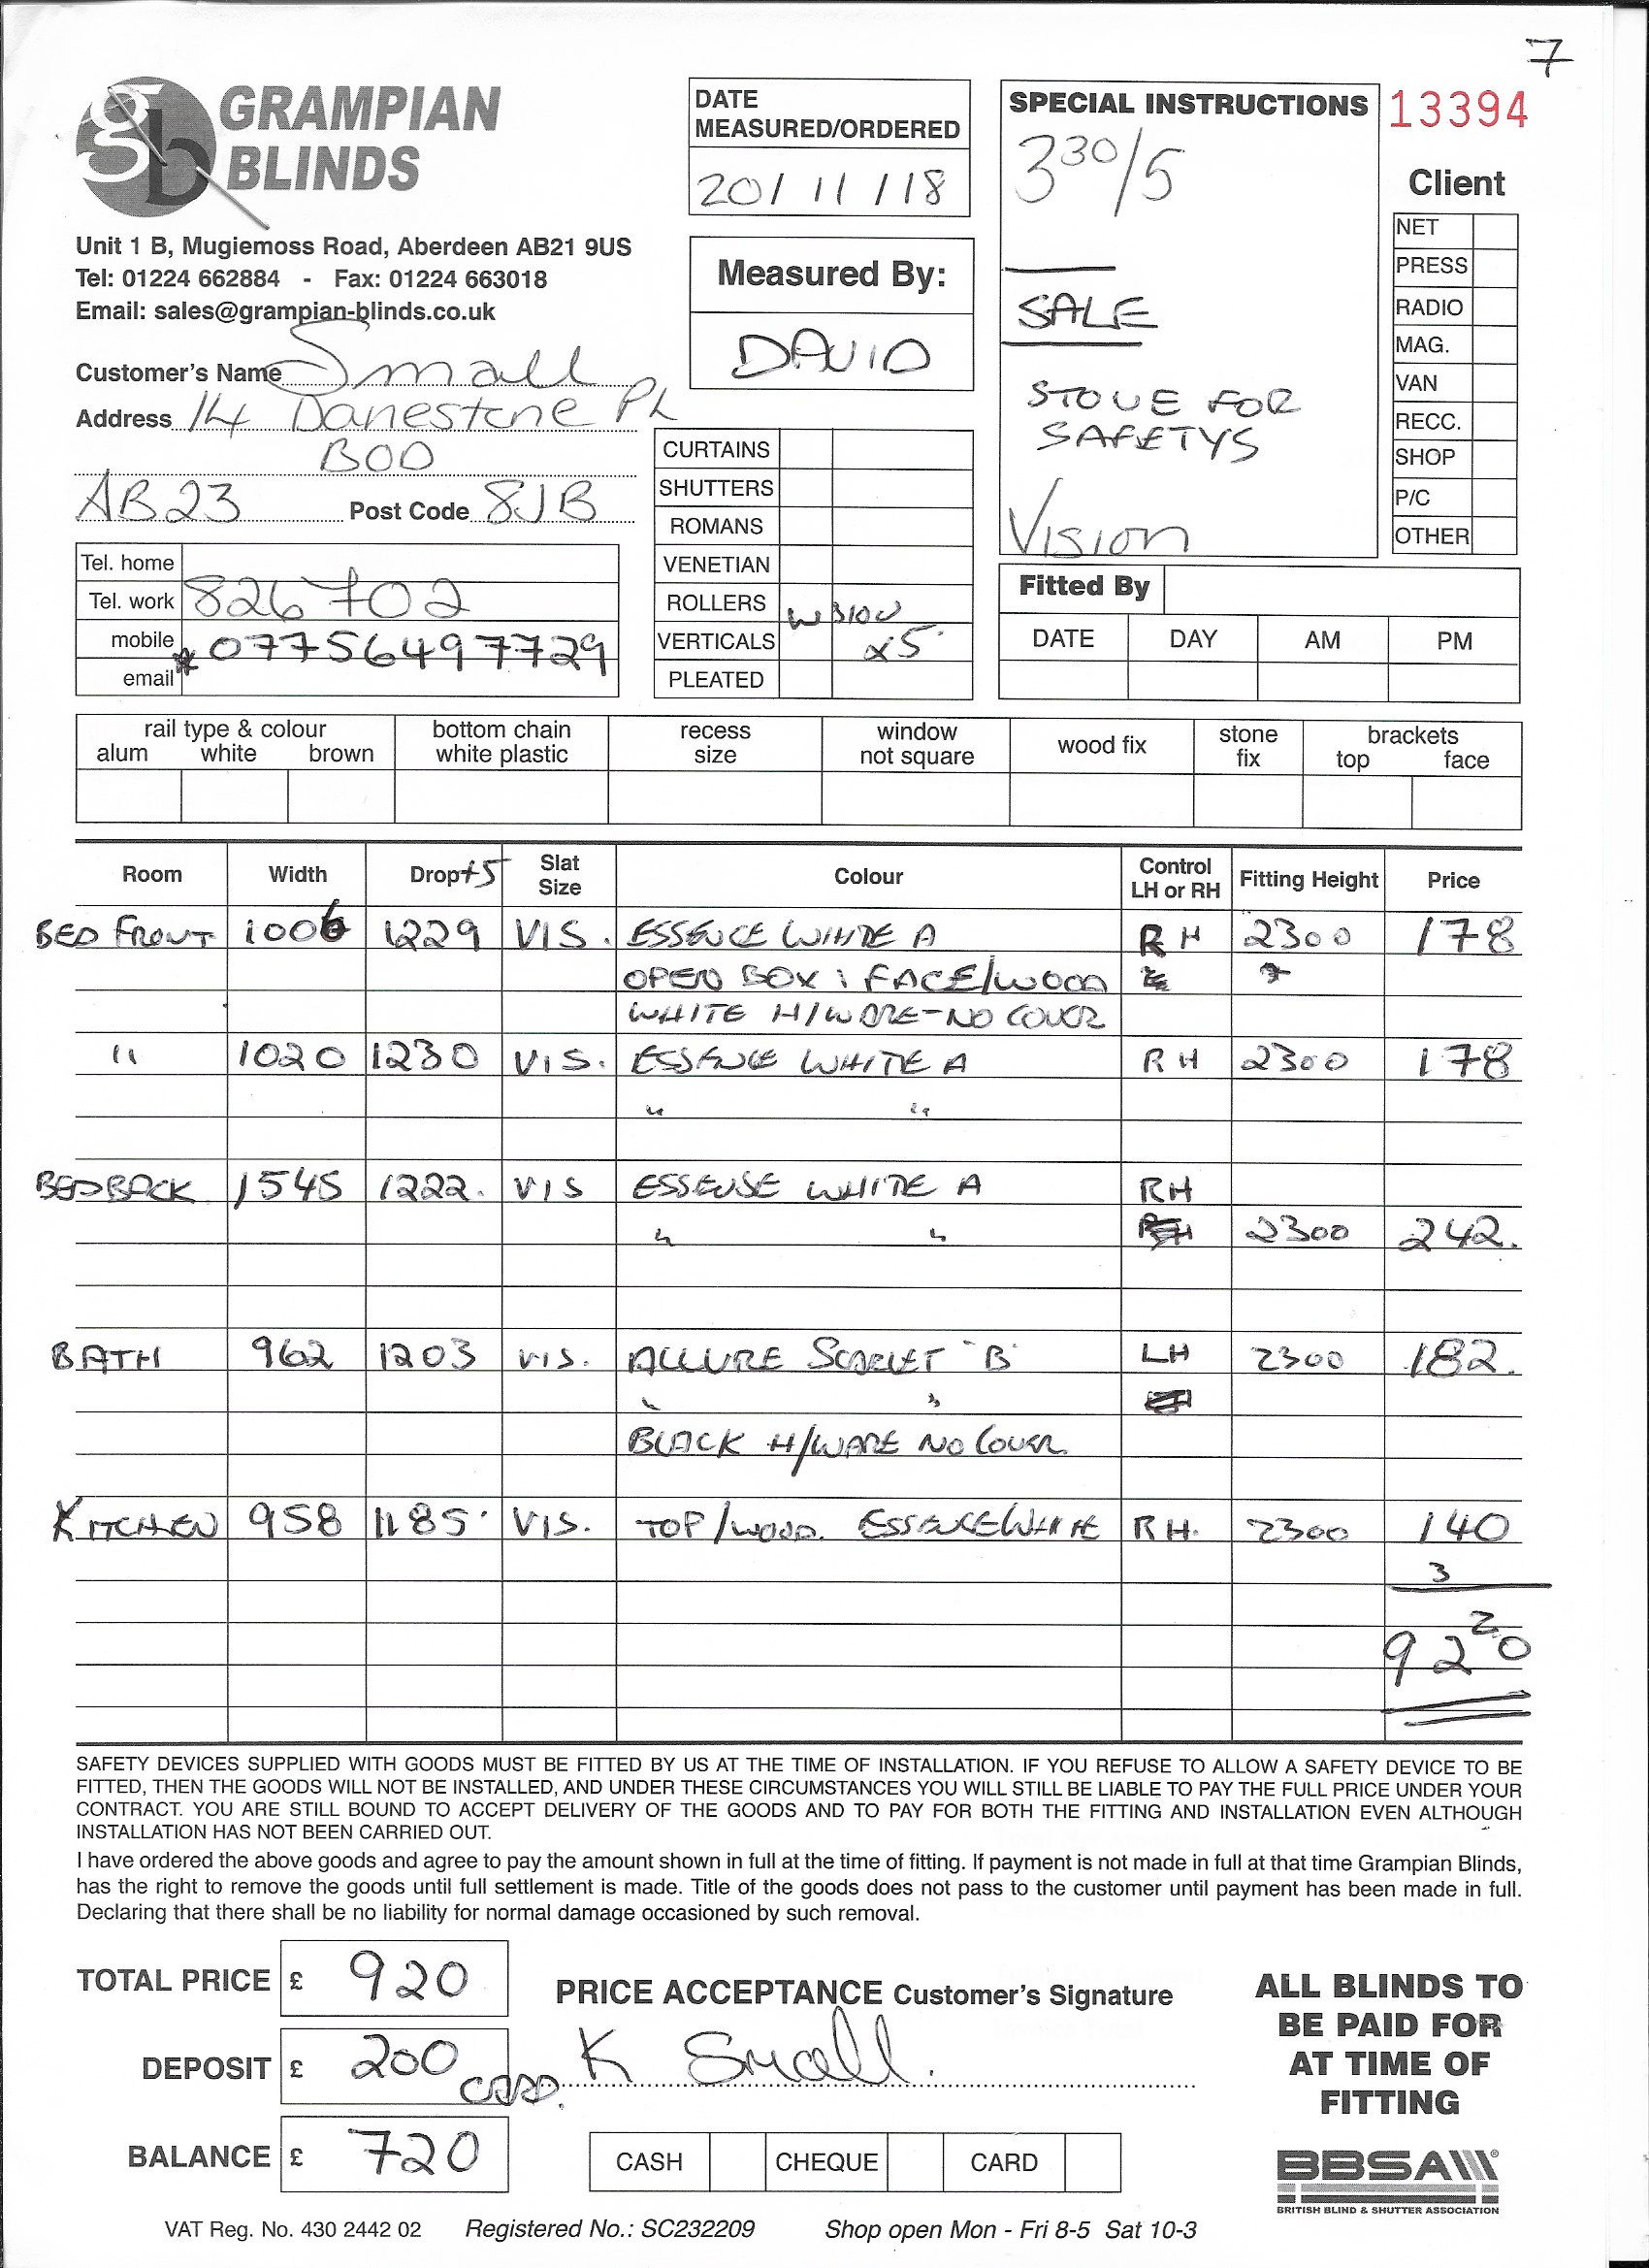 7
GRAMPIAN
BLINDS
Unit 1 B, Mugiemoss Road, Aberdeen AB21 9US
Tel: 01224 662884 - Fax: 01224 663018
Email: sales@grampian-blinds.co.uk
Customer's Name Small
Address 14 Danestone PL
BOD
AB23 Post Code 8JB
Tel. home
Tel. work 826702
mobile * 07756497729
email
DATE
MEASURED/ORDERED
20/11/18
Measured By:
DAVID
CURTAINS
SHUTTERS
ROMANS
VENETIAN
ROLLERS
VERTICALS x5
PLEATED
SPECIAL INSTRUCTIONS
3 30/5
SALE
STONE FOR
SAFETYS
Vision
13394
Client
NET
PRESS
RADIO
MAG.
VAN
RECC.
SHOP
P/C
OTHER
Fitted By
DATE DAY AM PM
rail type & colour
alum white brown
bottom chain
white plastic
recess
size
window
not square
wood fix
stone
fix
brackets
top face
Room Width Drop +5 Slat Size Colour Control LH or RH Fitting Height Price
BED FRONT 1006 1229 VIS. ESSENCE WHITE A RH 2300 178
OPEN BOX : FACE/WOOD
WHITE H/WARE - NO COVER
" 1020 1230 VIS. ESSENCE WHITE A RH 2300 178
" "
BED BACK 1545 1222. VIS ESSENSE WHITE A RH
" " 2300 242.
BATH 962 1203 VIS. ALLURE SCARLET "B" LH 2300 182.
" "
BLACK H/WARE NO COVER
KITCHEN 958 1185. VIS. TOP/WOOD. ESSENCE WHITE RH. 2300 140
3
2
920
SAFETY DEVICES SUPPLIED WITH GOODS MUST BE FITTED BY US AT THE TIME OF INSTALLATION. IF YOU REFUSE TO ALLOW A SAFETY DEVICE TO BE
FITTED, THEN THE GOODS WILL NOT BE INSTALLED, AND UNDER THESE CIRCUMSTANCES YOU WILL STILL BE LIABLE TO PAY THE FULL PRICE UNDER YOUR
CONTRACT. YOU ARE STILL BOUND TO ACCEPT DELIVERY OF THE GOODS AND TO PAY FOR BOTH THE FITTING AND INSTALLATION EVEN ALTHOUGH
INSTALLATION HAS NOT BEEN CARRIED OUT.
I have ordered the above goods and agree to pay the amount shown in full at the time of fitting. If payment is not made in full at that time Grampian Blinds,
has the right to remove the goods until full settlement is made. Title of the goods does not pass to the customer until payment has been made in full.
Declaring that there shall be no liability for normal damage occasioned by such removal.
TOTAL PRICE £ 920
DEPOSIT £ 200 CARD.
BALANCE £ 720
PRICE ACCEPTANCE Customer's Signature
K Small.
CASH CHEQUE CARD
ALL BLINDS TO
BE PAID FOR
AT TIME OF
FITTING
BBSA
BRITISH BLIND & SHUTTER ASSOCIATION
VAT Reg. No. 430 2442 02 Registered No.: SC232209 Shop open Mon - Fri 8-5 Sat 10-3